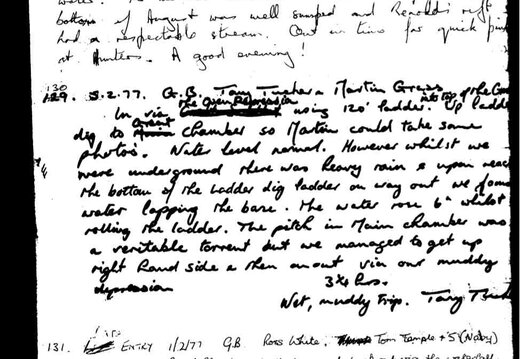 bottom of August was well sumped and Reynolds rift
had a respectable stream. Out in time for quick pint
at Hunters. A good evening!
130
129. 5.2.77. G.B. Tony Tucker & Martin Grass
In via the Open Depression using 120' ladder. Up ladder
dig to Great chamber so Martin could take some
photos. Water level normal. However whilst we
were underground there was heavy rain & upon
the bottom of the ladder dig ladder on way out we found
water lapping the base. The water rose 6" whilst
rolling the ladder. The pitch in Main chamber was
a veritable torrent but we managed to get up
right hand side & then out via our muddy
depression
3¾ hrs.
Wet, muddy trip. Tony
131. ENTRY 1/2/77 GB Ross White. Tom Temple + 5 (Navy)